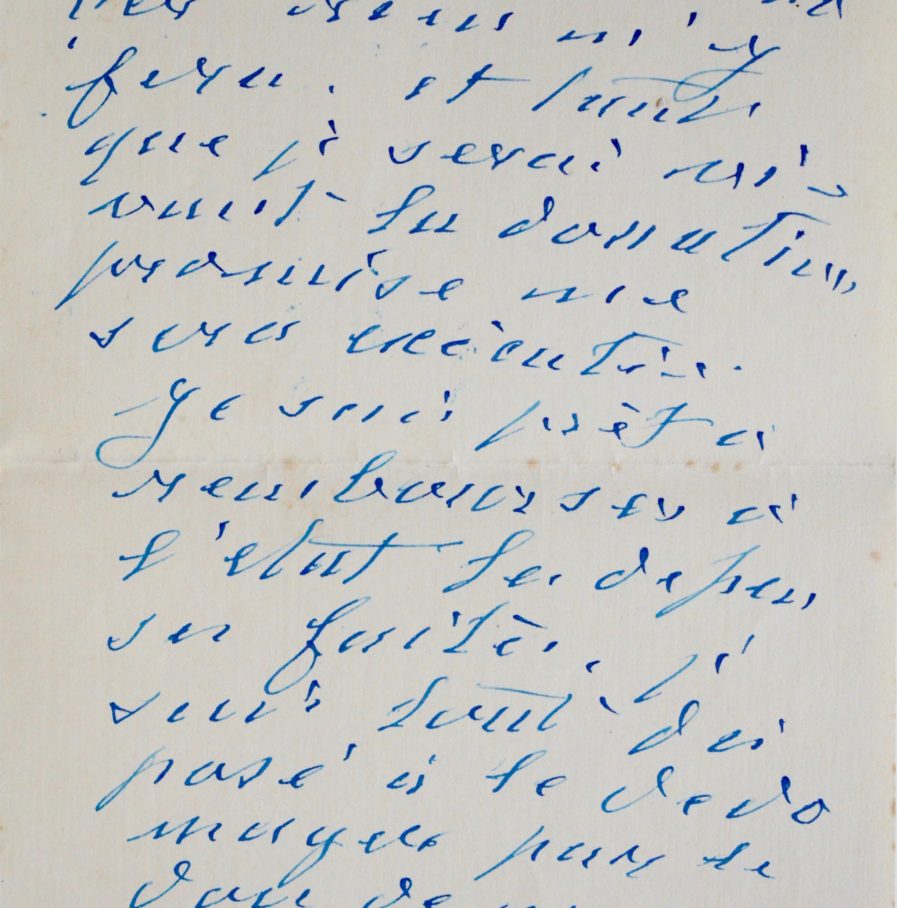 rien n'y
fera. et tant
que je serai vi-
vant la donation
promise ne
sera exécutée.
Je suis prêt a
rembourser a
l'etat les depen
ses faites, je
suis tout dis
posé à le dedo
mager par le
don de